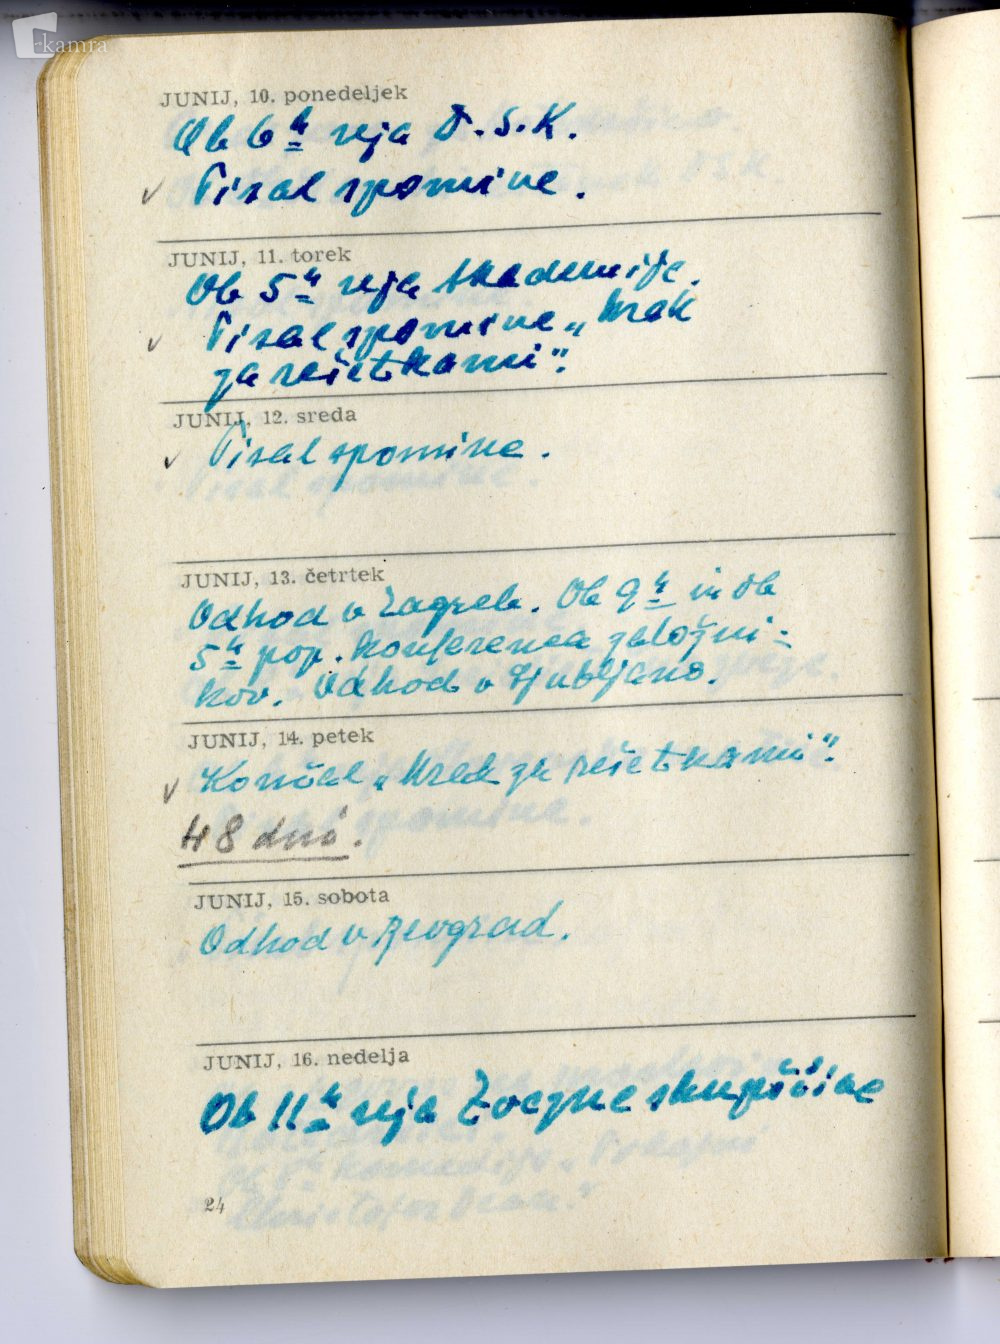 kamra
JUNIJ, 10. ponedeljek
Ob 6h seja D.S.K.
✓ Pisal spomine.
JUNIJ, 11. torek
Ob 5h seja Akademije.
✓ Pisal spomine „Mrak
za rešetkami".
JUNIJ, 12. sreda
✓ Pisal spomine.
JUNIJ, 13. četrtek
Odhod v Zagreb. Ob 9h in ob
5h pop. konferenca založni-
kov. Odhod v Ljubljano.
JUNIJ, 14. petek
✓ Končal „Mrak za rešetkami".
48 dni.
JUNIJ, 15. sobota
Odhod v Beograd.
JUNIJ, 16. nedelja
Ob 11h seja Zvezne skupščine
24